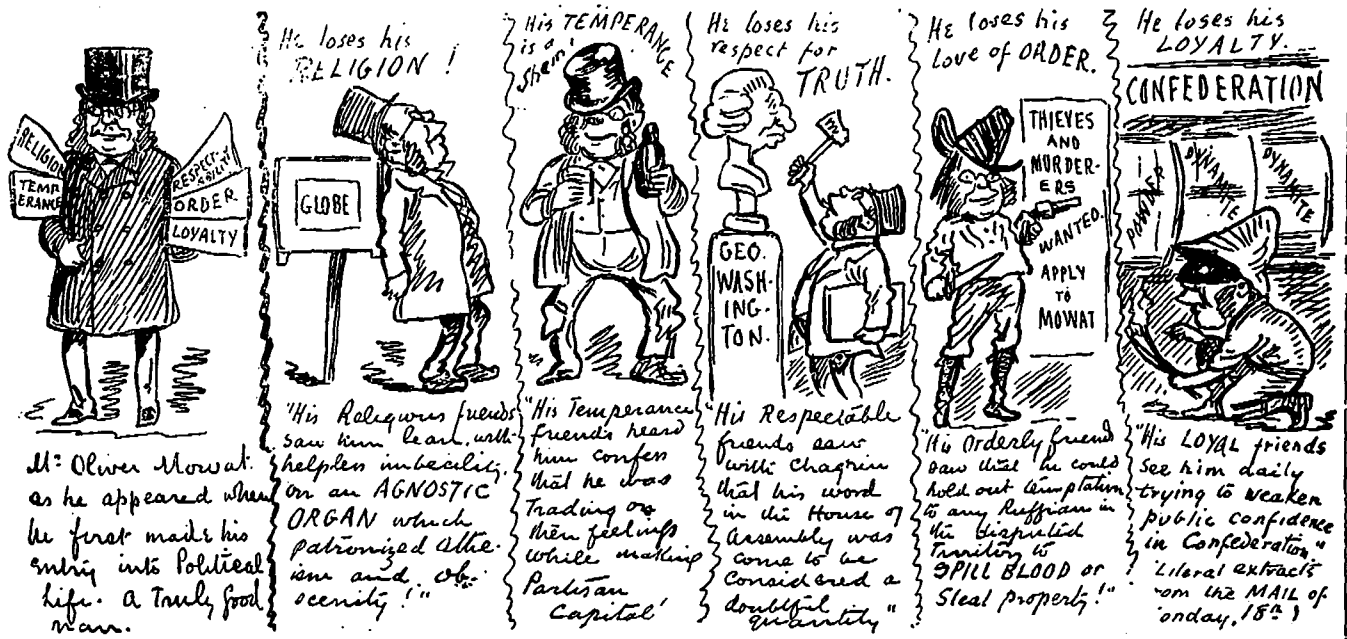 RELIGION
TEMP
ERANCE
RESPECT-
ABILITY
ORDER.
LOYALTY
Mr. Oliver Mowat.
as he appeared when
he first made his
entry into Political
Life. A Truly Good
man.
He loses his
RELIGION!
GLOBE
"His Religious friends
saw him lean, with
helpless imbecility,
on an AGNOSTIC
ORGAN which
patronized Athe-
ism and ob-
scenity!"
His TEMPERANCE
is a
sham!
"His Temperance
friends heard
him confess
that he was
Trading on
their feelings
while making
Partisan
Capital'
He loses his
respect for
TRUTH.
GEO.
WASH-
ING-
TON.
"His Respectable
friends saw
with Chagrin
that his word
in the House of
Assembly was
come to be
considered a
doubtful
quantity"
He loses his
Love of ORDER.
THIEVES
AND
MURDER-
ERS
WANTED.
APPLY
TO
MOWAT
"His Orderly friends
saw that he could
hold out temptation
to any Ruffian in
the disputed
Territory to
SPILL BLOOD or
Steal property!"
He loses his
LOYALTY.
CONFEDERATION
POWDER
DYNAMITE
DYNAMITE
"His LOYAL friends
see him daily
trying to weaken
public confidence
in Confederation."
Literal extracts
from the MAIL of
onday, 18th